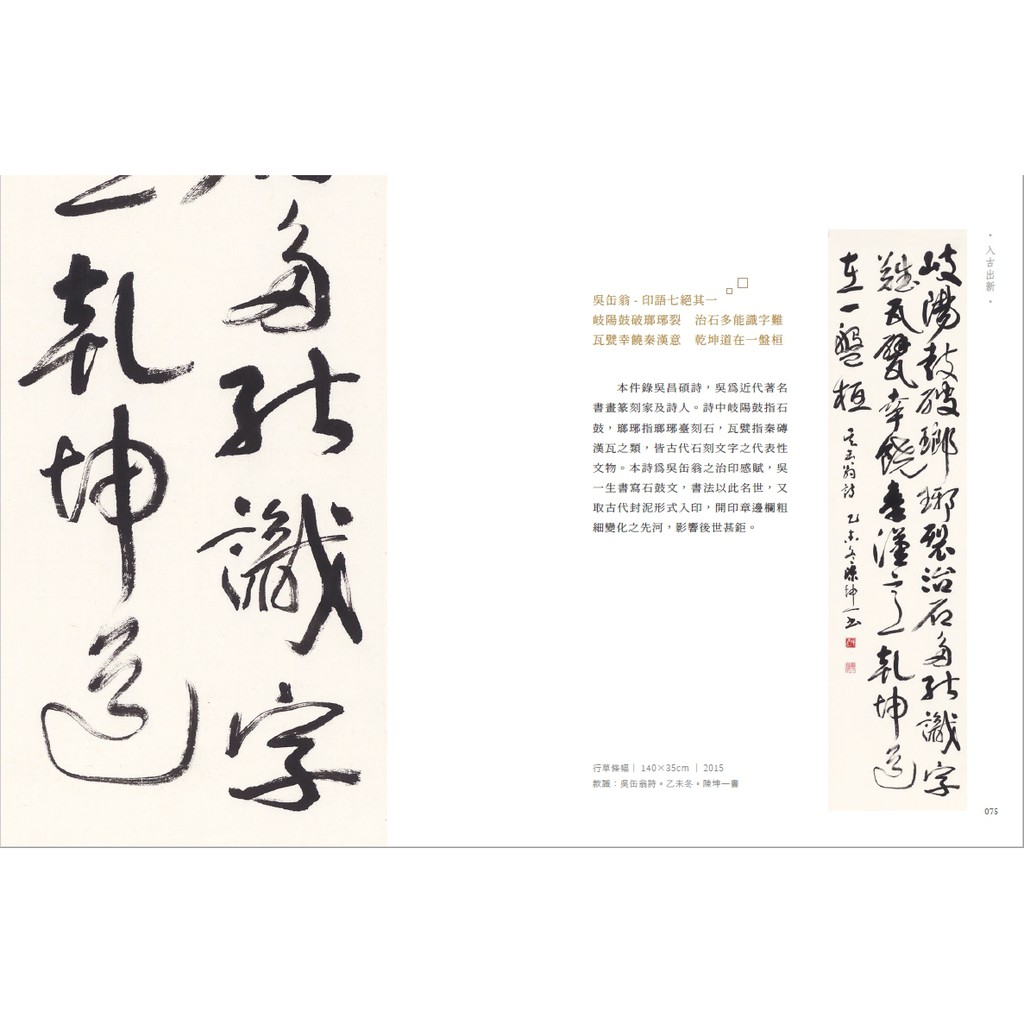 多能識字
乾坤道
吳缶翁 - 印語七絕其一
岐陽鼓破瑯琊裂　治石多能識字難
瓦甓幸饒秦漢意　乾坤道在一盤桓
本件錄吳昌碩詩，吳為近代著名
書畫篆刻家及詩人。詩中岐陽鼓指石
鼓，瑯琊指瑯琊臺刻石，瓦甓指秦磚
漢瓦之類，皆古代石刻文字之代表性
文物。本詩為吳缶翁之治印感賦，吳
一生書寫石鼓文，書法以此名世，又
取古代封泥形式入印，開印章邊欄粗
細變化之先河，影響後世甚鉅。
行草條幅｜ 140×35cm ｜ 2015
款識：吳缶翁詩。乙未冬。陳坤一書
岐陽鼓破瑯琊裂治石多能識字
難瓦甓幸饒秦漢意乾坤道
在一盤桓 吳缶翁詩 乙未冬陳坤一書
• 入古出新 •
075